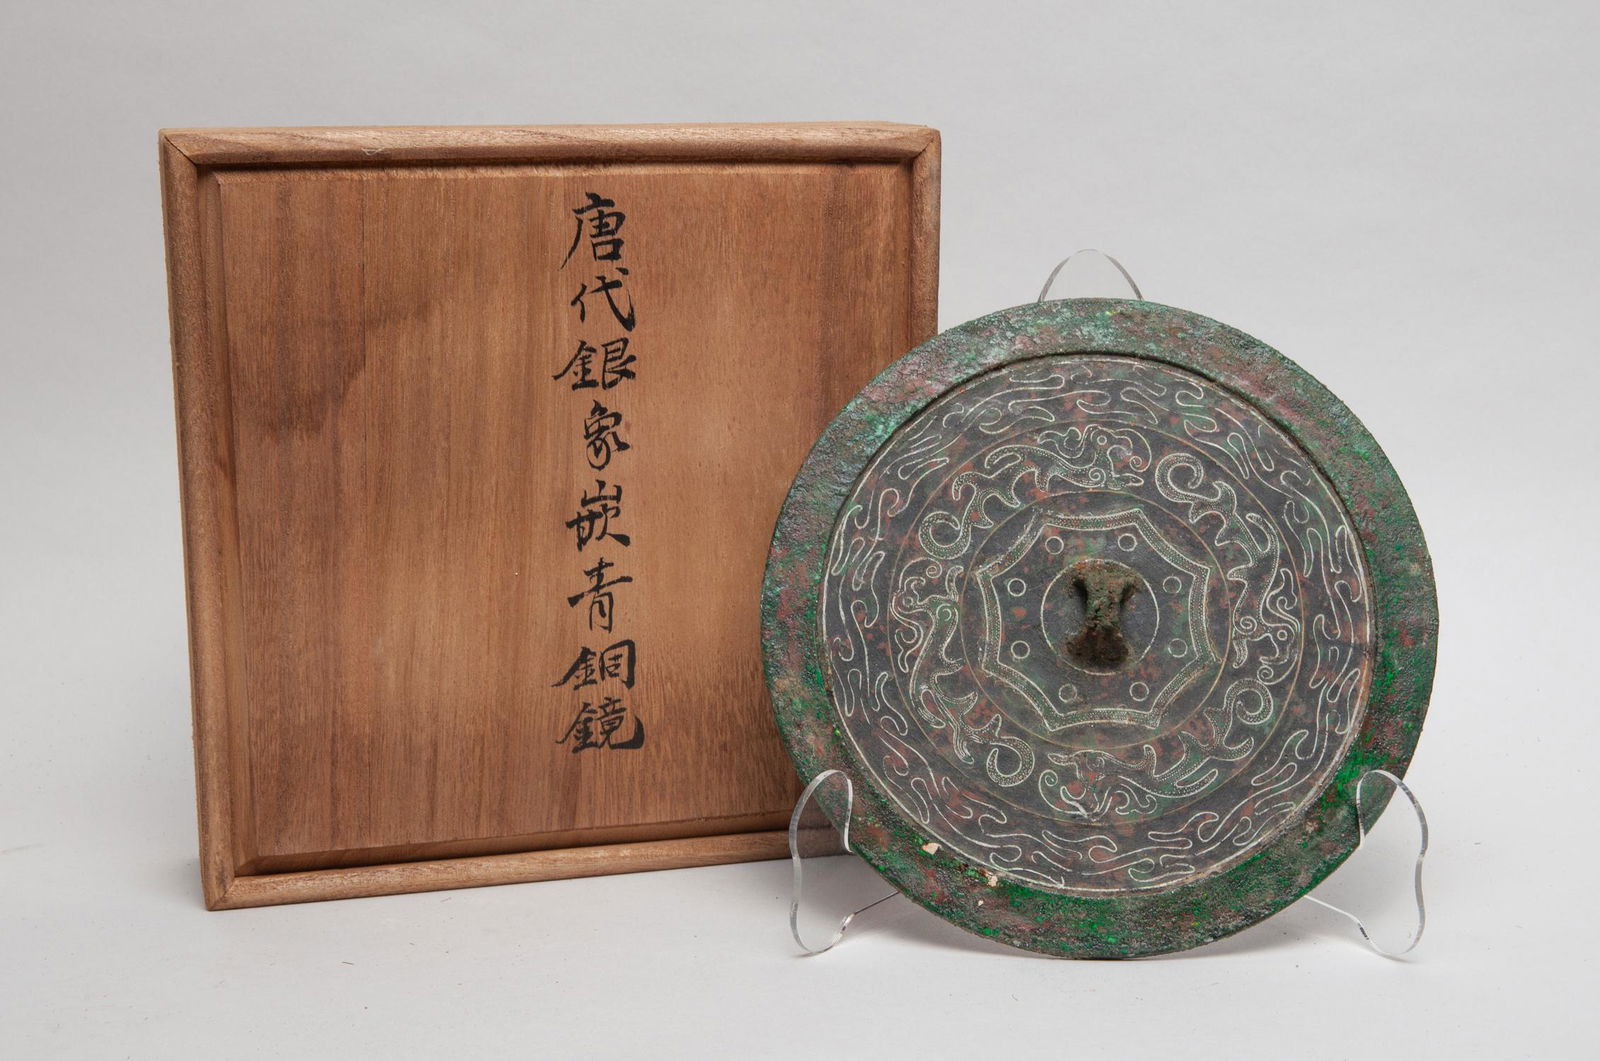 唐代銀象嵌青銅鏡